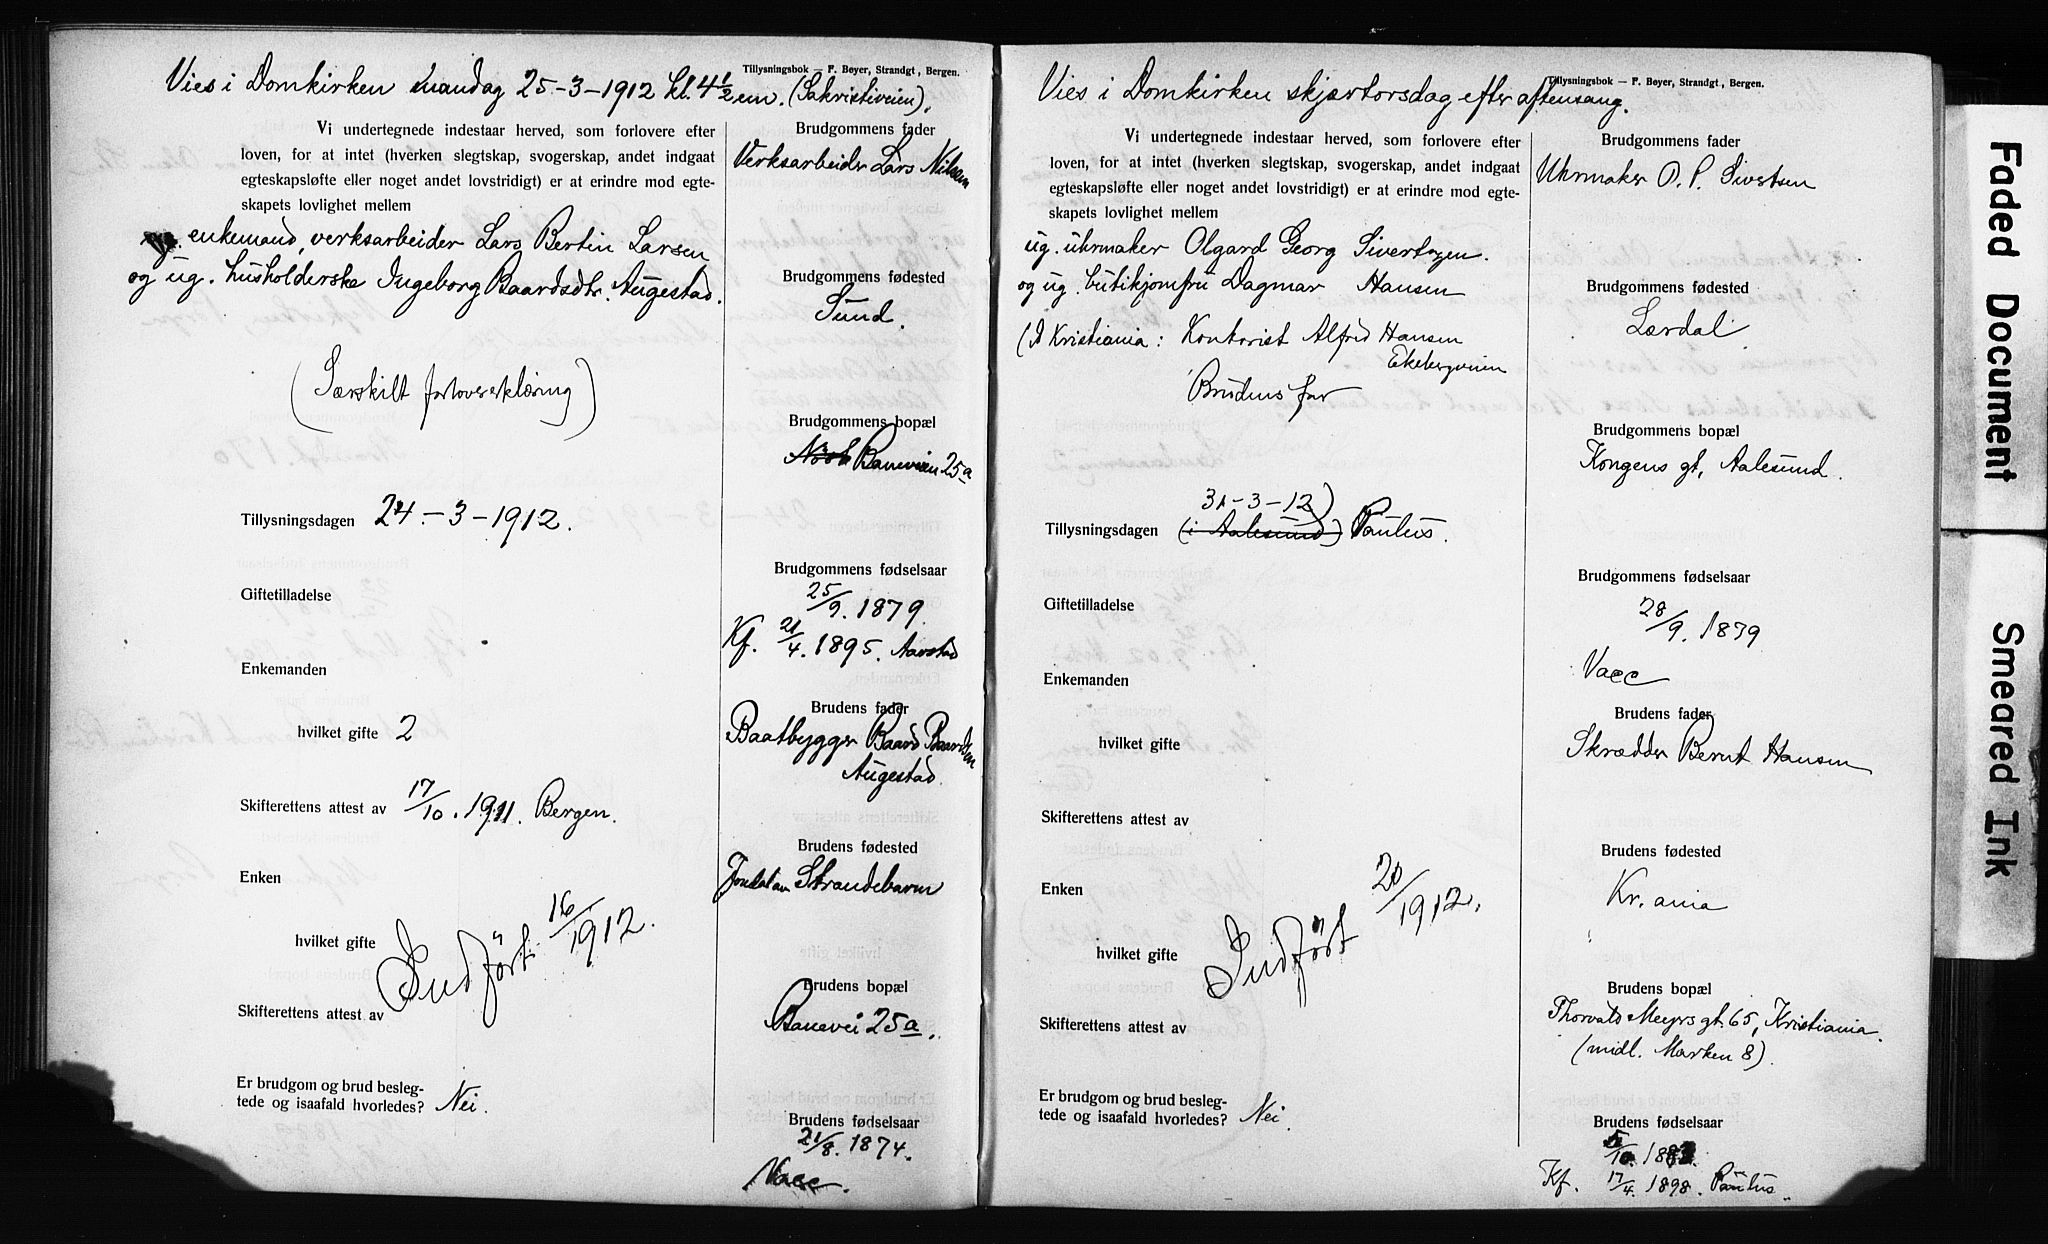 Tillysningsbok — F. Beyer, Strandgt., Bergen.
Vies i Domkirken mandag 25-3-1912 kl. 4½ em. (Sakristiveien).
Vi undertegnede indestaar herved, som forlovere efter
loven, for at intet (hverken slegtskap, svogerskap, andet indgaat
egteskapsløfte eller noget andet lovstridigt) er at erindre mod egte-
skapets lovlighet mellem
enkemand, verksarbeider Lars Bertin Larsen
og ug. husholderske Ingeborg Baardsdtr. Augestad.
(Særskilt forlovererklæring)
Tillysningsdagen 24.-3-1912.
Giftetilladelse
Enkemanden
hvilket gifte 2
Skifterettens attest av 17/10. 1911. Bergen.
Enken
hvilket gifte
Indført 16/1912.
Skifterettens attest av
Er brudgom og brud besleg-
tede og isaafald hvorledes? Nei.
Brudgommens fader
Verksarbeider Lars Nilsen
Brudgommens fødested
Sund.
Brudgommens bopæl
Baneveien 25a
Brudgommens fødselsaar
25/9. 1879.
Kf. 21/4. 1895. Aarstad
Brudens fader
Baatbygger Baard Baardsen
Augestad.
Brudens fødested
Jondal an Strandebarm
Brudens bopæl
Banevei 25a.
Brudens fødselsaar
21/8. 1874.
Vacc.
Tillysningsbok — F. Beyer, Strandgt., Bergen.
Vies i Domkirken skjærtorsdag efter aftensang.
Vi undertegnede indestaar herved, som forlovere efter
loven, for at intet (hverken slegtskap, svogerskap, andet indgaat
egteskapsløfte eller noget andet lovstridigt) er at erindre mod egte-
skapets lovlighet mellem
ug. uhrmaker Olgard Georg Sivertsen.
og ug. butikjomfru Dagmar Hansen
(I Kristiania: Kontorist Alfred Hansen
Ekebergveien
Brudens far
31-3-12)
Tillysningsdagen (i Aalesund) Paulus.
Giftetilladelse
Enkemanden
hvilket gifte
Skifterettens attest av
Enken
hvilket gifte
Indført 20/1912.
Skifterettens attest av
Er brudgom og brud besleg-
tede og isaafald hvorledes? Nei.
Brudgommens fader
Uhrmaker O. P. Sivertsen
Brudgommens fødested
Lærdal
Brudgommens bopæl
Kongens gt, Aalesund.
Brudgommens fødselsaar
28/9. 1879
Vacc
Brudens fader
Skrædder Bernt Hansen
Brudens fødested
Kr.ania
Brudens bopæl
Thorvald Meyrs gt. 65, Kristiania.
(midl. Marken 8).
Brudens fødselsaar
Kf. 17/4. 1898. Paulus.
Faded Document
Smeared Ink